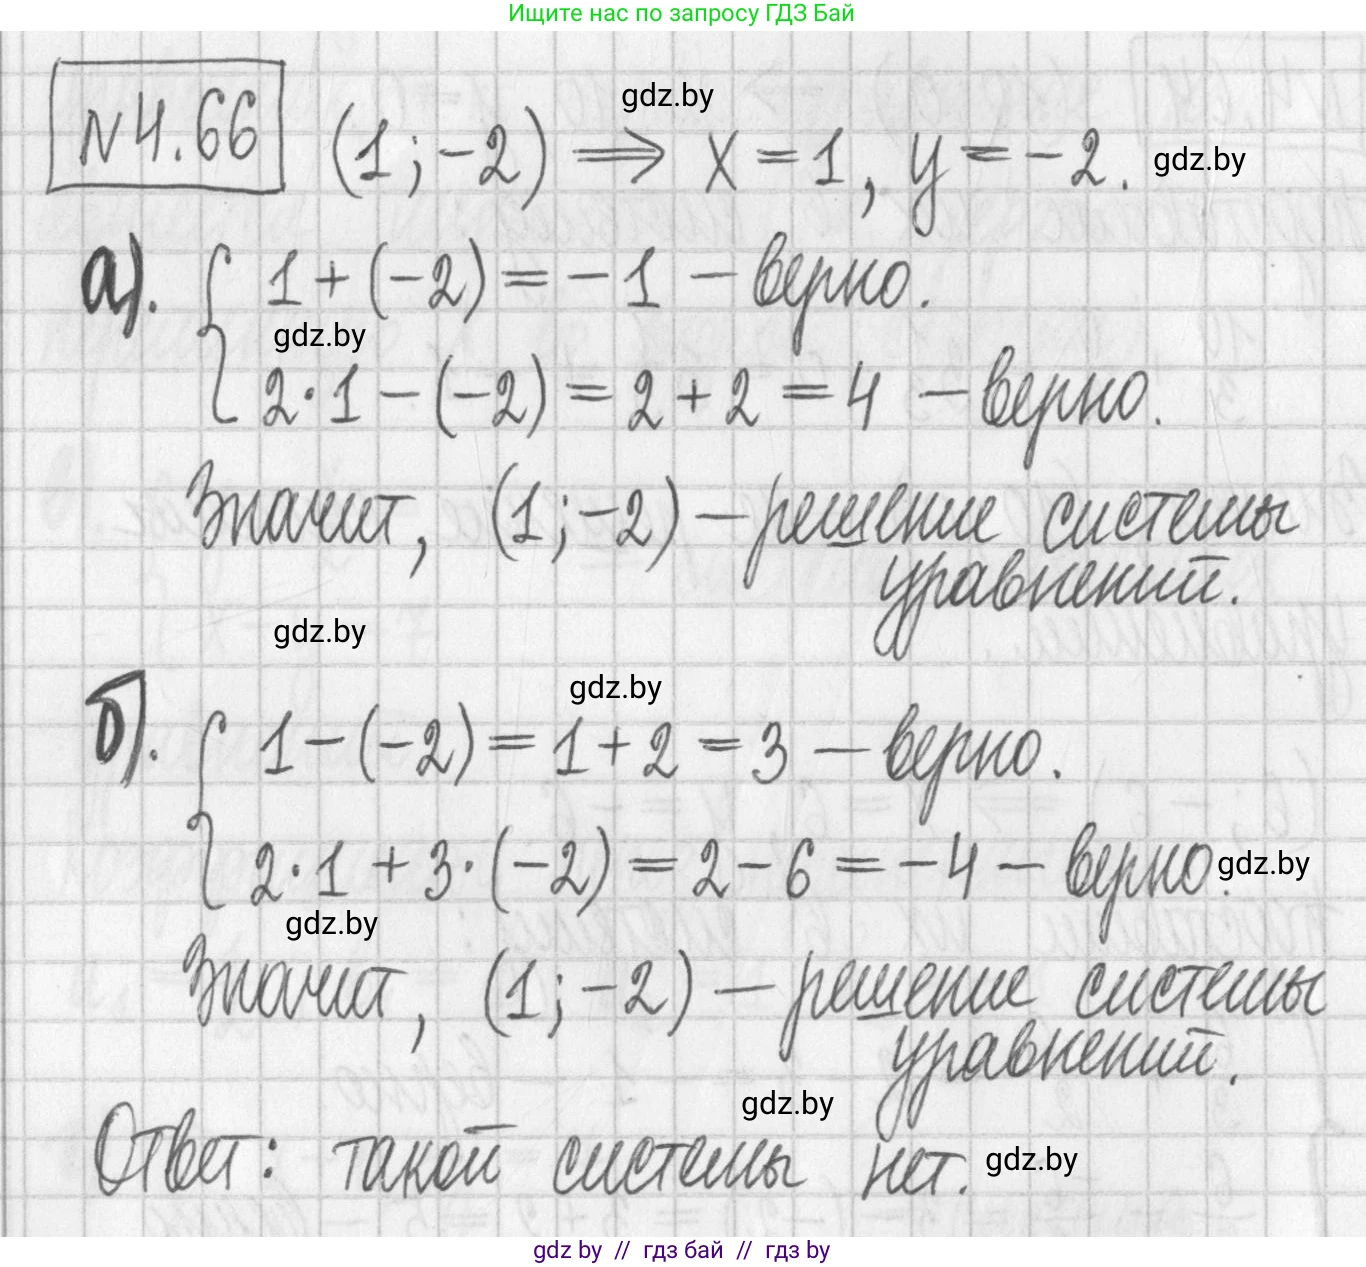 Ищите нас по запросу ГДЗ Бай
№4.66 (1; -2) ⟹ x = 1, y = -2.
gdz.by
gdz.by
а). { 1 + (-2) = -1 - верно.
gdz.by
2·1 - (-2) = 2 + 2 = 4 - верно.
Значит, (1; -2) - решение системы
уравнений.
gdz.by
gdz.by
б). { 1 - (-2) = 1 + 2 = 3 - верно.
2·1 + 3·(-2) = 2 - 6 = -4 - верно.
gdz.by
gdz.by
Значит, (1; -2) - решение системы
уравнений.
gdz.by
Ответ: такой системы нет.
gdz.by
gdz by // гдз бай // гдз by